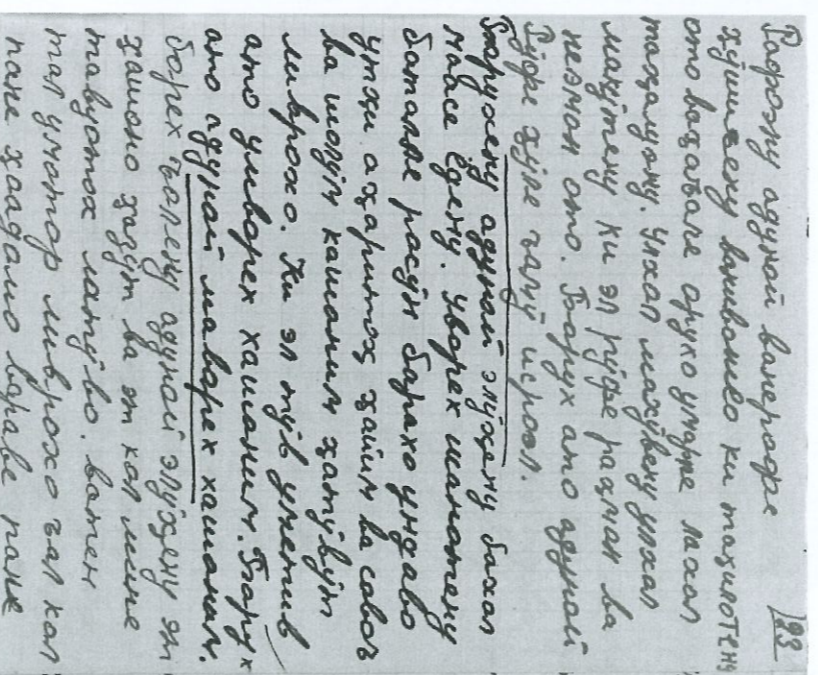 Рафоэну адунай ванерофе 23
ҳушиэну ванивошео ки таҳилотену
ото ваҳаъале аруко умарпе лахол
таҳалуэну. улхол махувену улхол
макутену ки эл руфе рахман ва
неэман ото. Барух ато адунай
Руфе ҳуле ъаму исроэл.
Борухену адунай элуҳену бахол
маъсе ёдену. уворех шанотену
баталъле расун барахо ундаво
утҳи аҳаритоҳ ҳайим ва совоъ
ва шолум кашоним ҳатувут
ливрохо. Ки эл тув уметив
ато умворех ҳашоним. Барух
ато адунай маворех ҳашоним.
борех ъолену адунай элуҳену эт
ҳашоно ҳазут ва эт кол мине
тавуотоҳ латуво. ватен
тал уматор ливрохо ъал кол
пане ҳаадамо вараве пане